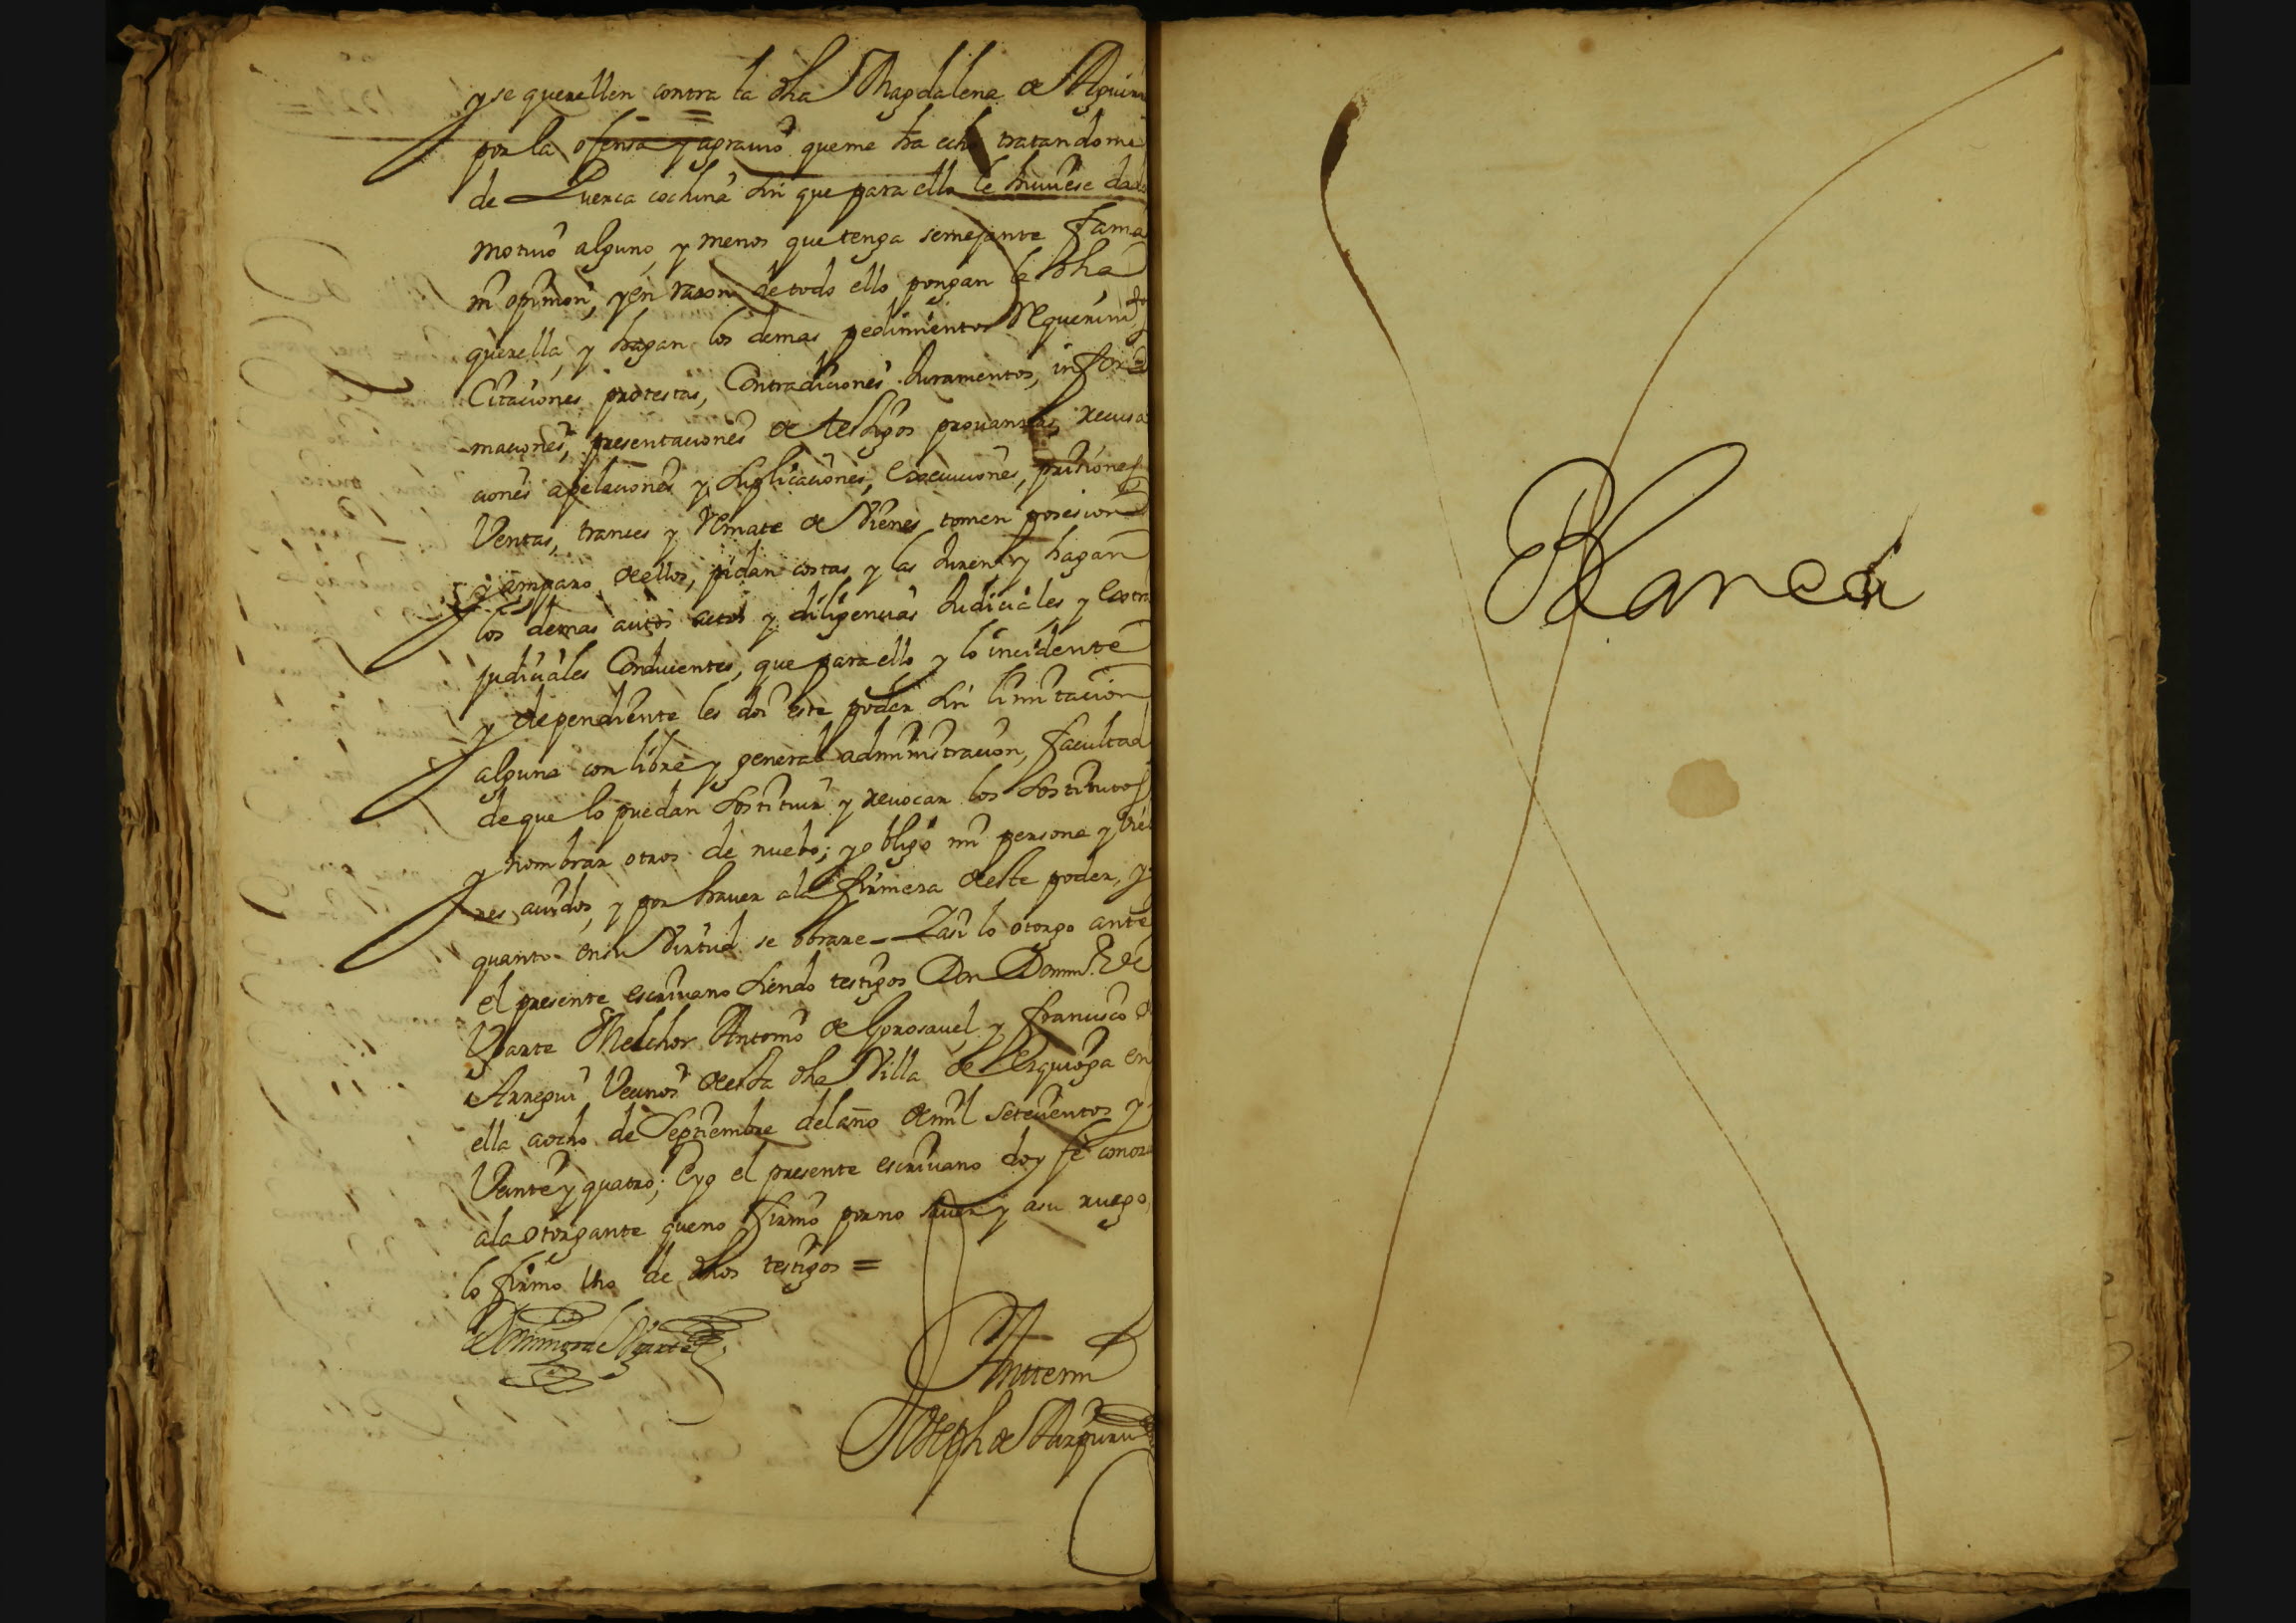 y se querellen contra la dha Magdalena de Aguirre
por la ofensa y agravio que me ha echo tratandome
de Puerca cochina sin que para ello le huuiese dado
motiuo alguno, y menos que tenga semejante fama
ni opinion, y en razon de todo ello pongan la dha
querella, y hagan los demas pedimientos Requerimtos
Citaciones protestas, Contradiciones Juramentos, infor=
maciones, presentaciones de testigos prouanzas, recusa
ciones apelaciones y suplicaciones, Execuciones, prisiones
Ventas, trances y Remate de Vienes tomen posesion
y amparo de ellos, pidan costas y las Juren y hagan
los demas autos actos y diligencias Judiciales y Extra
judiciales Conducientes, que para ello y lo incidente
y dependiente les doi este poder sin limitacion
alguna con libre y general administracion, facultad
de que lo puedan sostituir y reuocar los sostitutos
y nombrar otros de nuebo; y obligo mi persona y vie
nes auidos, y por hauer a la firmeza de este poder, y
quanto en su Virtud se obrare_ Y asi lo otorgo ante
el presente escriuano siendo testigos Don Domingo de
Ugarte Melchor Antonio de Gorosauel y Francisco de
Arregui Vecinos de esta dha Villa de Ezquioga en
ella a ocho de Septiembre del año de mil Setecientos y
Veinte y quatro; E yo el presente escriuano doy fe conozco
a la otorgante que no firmo por no sauer y a su ruego
lo firmo Uno de dhos testigos =
Domingo de Ugarte
Ante mi
Joseph de
Blanca